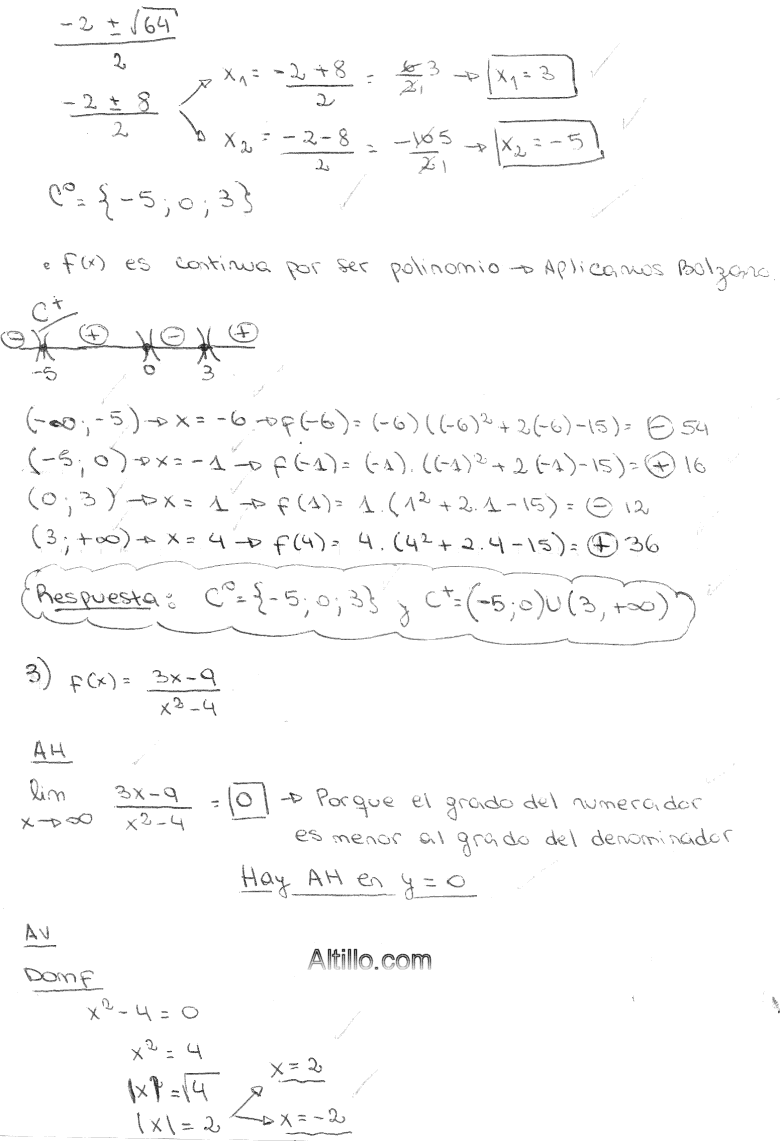 -2 ± √64 / 2
-2 ± 8 / 2
x₁ = -2 + 8 / 2 = 6 3 / 2 1 → x₁ = 3
x₂ = -2 - 8 / 2 = -10 5 / 2 1 → x₂ = -5
C⁰ = {-5; 0; 3}
• f(x) es continua por ser polinomio → Aplicamos Bolzano.
C⁺
⊖ ⊕ ⊖ ⊕
-5 0 3
(-∞; -5) → x = -6 → f(-6) = (-6)((-6)² + 2(-6) - 15) = ⊖ 54
(-5; 0) → x = -1 → f(-1) = (-1).((-1)² + 2(-1) - 15) = ⊕ 16
(0; 3) → x = 1 → f(1) = 1.(1² + 2.1 - 15) = ⊖ 12
(3; +∞) → x = 4 → f(4) = 4.(4² + 2.4 - 15) = ⊕ 36
Respuesta: C⁰ = {-5; 0; 3} y C⁺ = (-5; 0) U (3, +∞)
3) f(x) = 3x - 9 / x² - 4
AH
lim x→∞ 3x - 9 / x² - 4 = 0 → Porque el grado del numerador
es menor al grado del denominador
Hay AH en y = 0
AV
Altillo.com
Domf
x² - 4 = 0
x² = 4
|x| = √4
x = 2
|x| = 2
x = -2